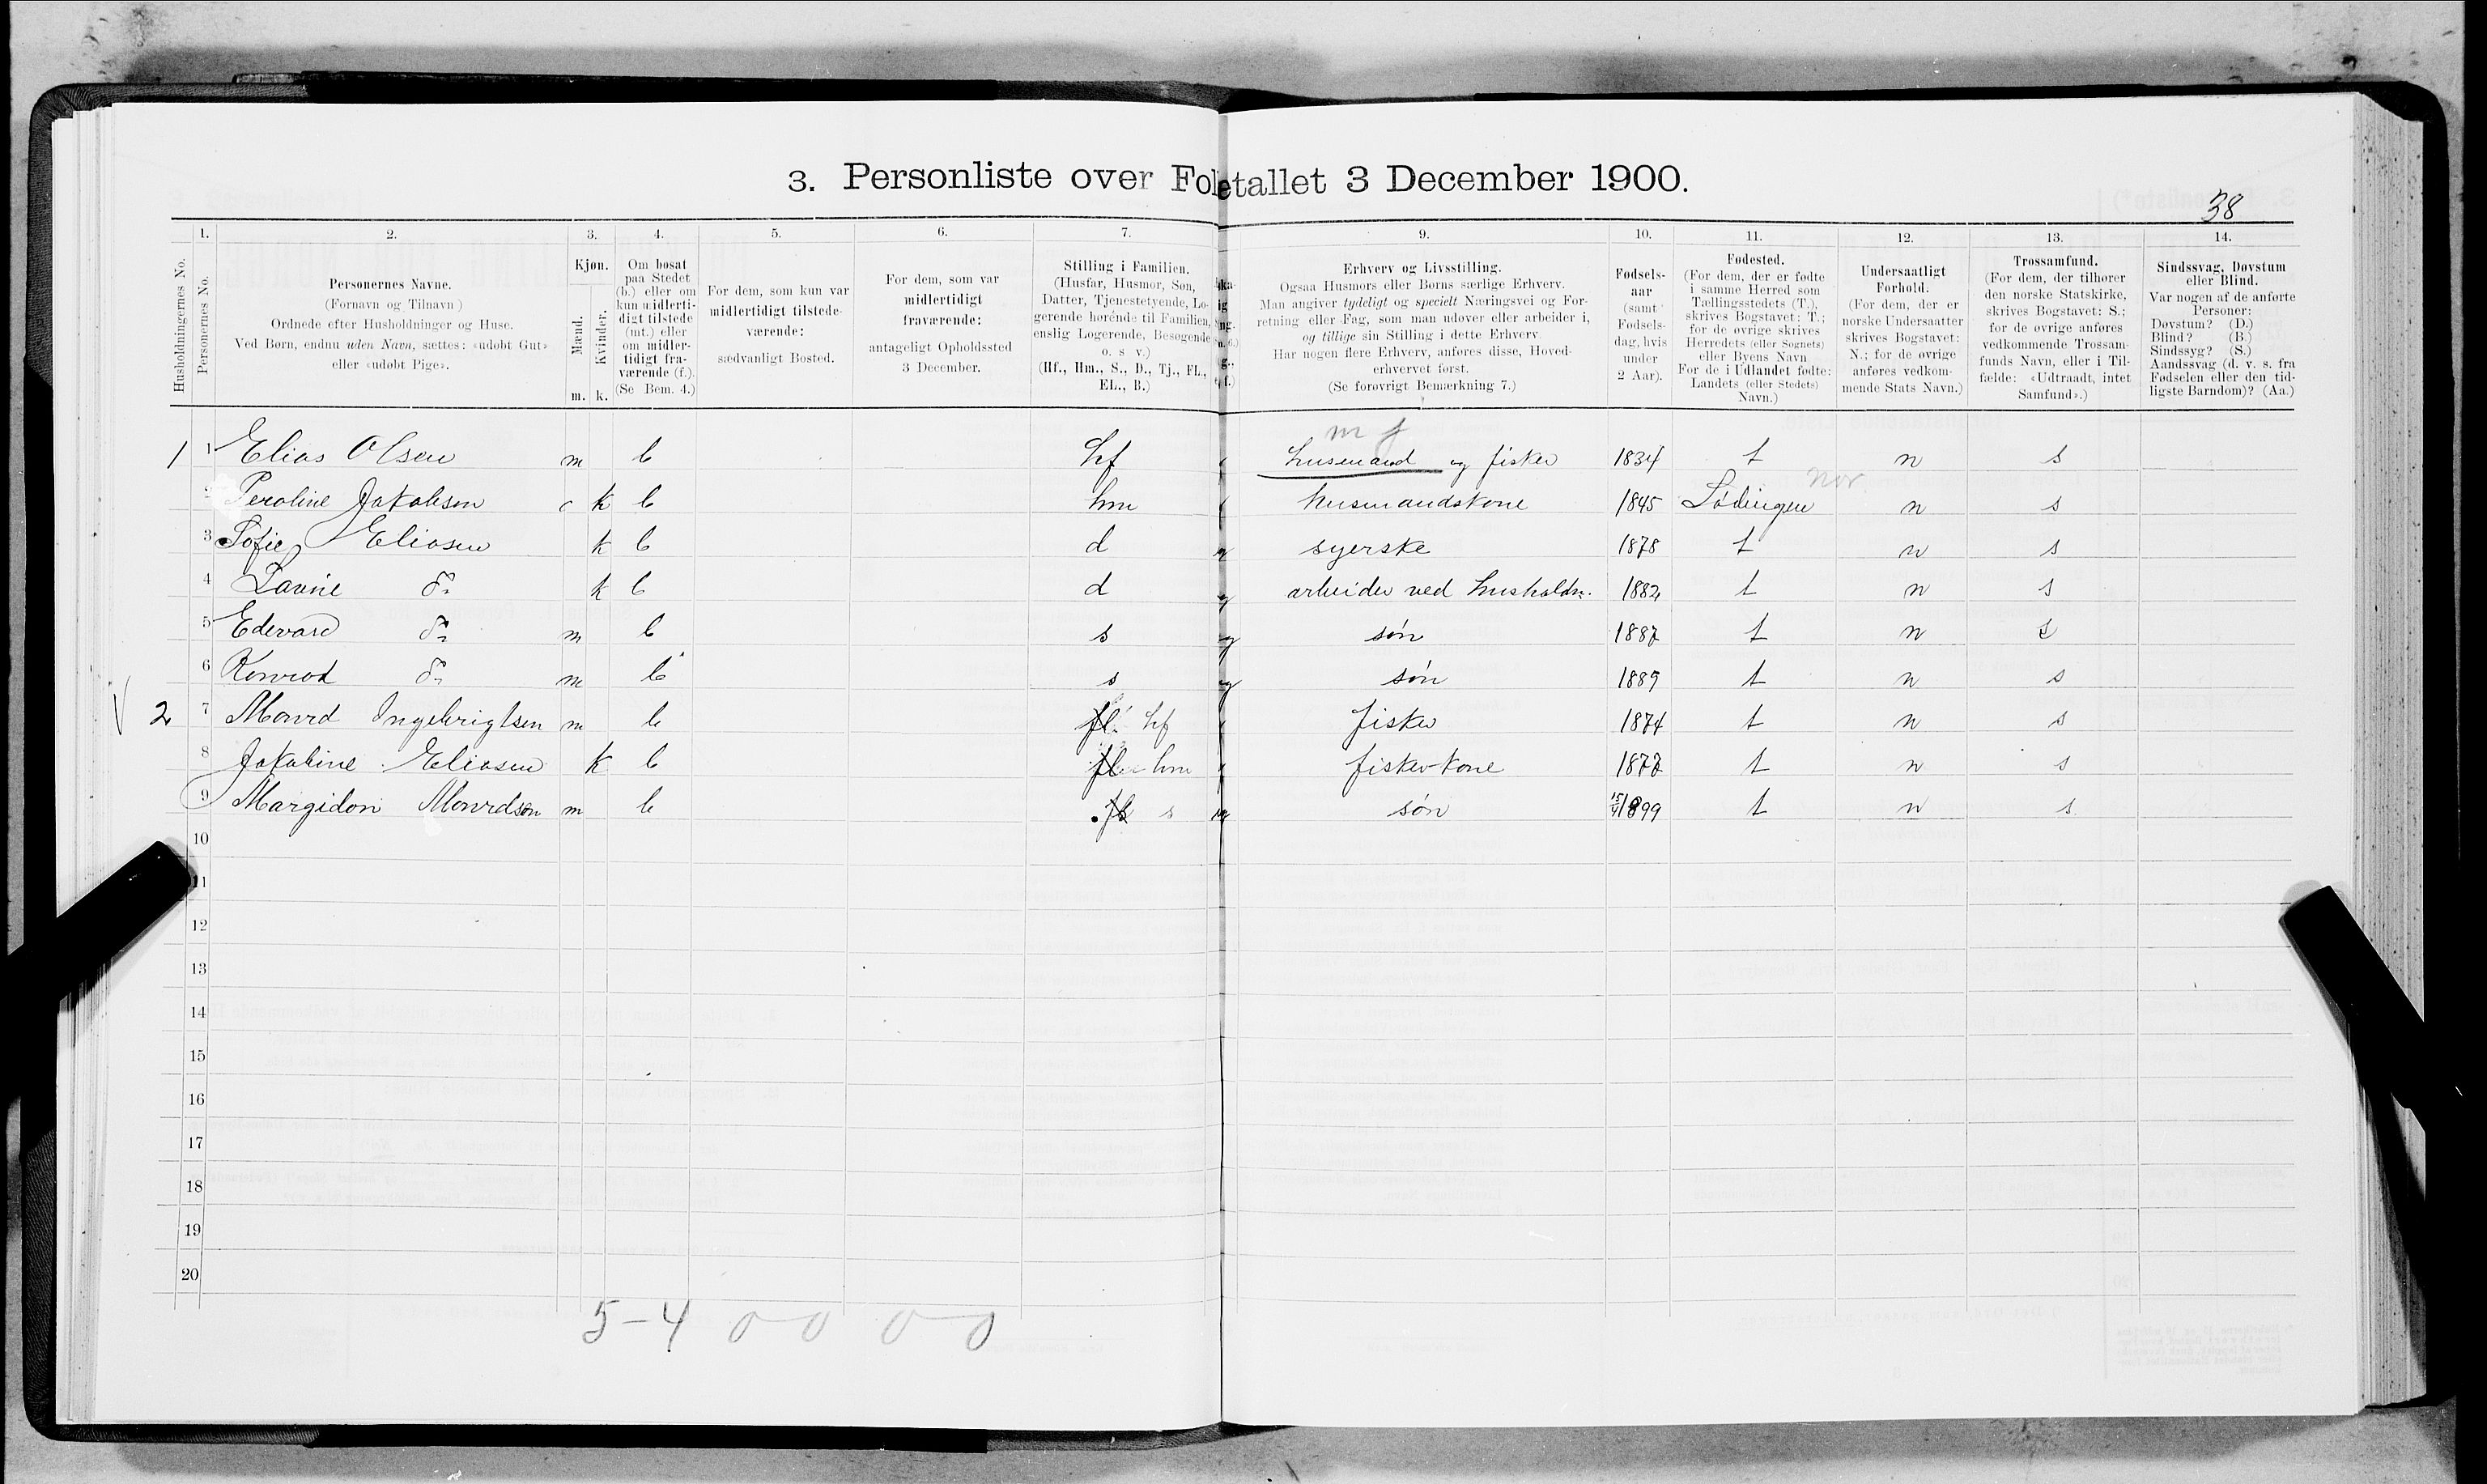 3. Personliste over Folketallet 3 December 1900.
38
1. 2. 3. 4. 5. 6. 7. 9. 10. 11. 12. 13. 14.
Husholdningernes No.
Personernes No.
Personernes Navne.
(Fornavn og Tilnavn)
Ordnede efter Husholdninger og Huse.
Ved Børn, endnu uden Navn, sættes: «udøbt Gut»
eller «udøbt Pige».
Kjøn.
Mænd.
Kvinder.
m. k.
Om bosat
paa Stedet
(b.) eller om
kun midlerti-
digt tilstede
(mt.) eller
om midler-
tidigt fra-
værende (f.).
(Se Bem. 4.)
For dem, som kun var
midlertidigt tilstede-
værende:
sædvanligt Bosted.
For dem, som var
midlertidigt
fraværende:
antageligt Opholdssted
3 December.
Stilling i Familien.
(Husfar, Husmor, Søn,
Datter, Tjenestetyende, Lo-
gerende hørende til Familien,
enslig Logerende, Besøgende
o. s. v.)
(Hf., Hm., S., D., Tj., FL.,
EL., B.)
Erhverv og Livsstilling.
Ogsaa Husmors eller Børns særlige Erhverv.
Man angiver tydeligt og specielt Næringsvei og For-
retning eller Fag, som man udøver eller arbeider i,
og tillige sin Stilling i dette Erhverv.
Har nogen flere Erhverv, anføres disse, Hoved-
erhvervet først.
(Se forøvrigt Bemærkning 7.)
Fødsels-
aar
(samt
Fødsels-
dag, hvis
under
2 Aar).
Fødested.
(For dem, der er fødte
i samme Herred som
Tællingsstedets (T.),
skrives Bogstavet: T.;
for de øvrige skrives
Herredets (eller Sognets)
eller Byens Navn.
For de i Udlandet fødte:
Landets (eller Stedets)
Navn.)
Undersaatligt
Forhold.
(For dem, der er
norske Undersaatter
skrives Bogstavet:
N.; for de øvrige
anføres vedkom-
mende Stats Navn.)
Trossamfund.
(For dem, der tilhører
den norske Statskirke,
skrives Bogstavet: S.;
for de øvrige anføres
vedkommende Trossam-
funds Navn, eller i Til-
fælde: «Udtraadt, intet
Samfund».)
Sindssvag, Døvstum
eller Blind.
Var nogen af de anførte
Personer:
Døvstum? (D.)
Blind? (B.)
Sindssyg? (S.)
Aandssvag (d. v. s. fra
Fødselen eller den tid-
ligste Barndom)? (Aa.)
m f
1 1 Elias Olsen m b hf husmand og fisker 1834 t n s
nor
2 Peroline Jakobsen k b hm husmandskone 1845 Lødingen n s
3 Sofie Eliasen k b d g syerske 1878 t n s
4 Lavine do k b d g arbeider ved husholdn. 1882 t n s
5 Edevard do m b s g søn 1887 t n s
6 Konrad do m b s g søn 1889 t n s
2 7 Monrd Ingebrigtsen m b fl hf fisker 1874 t n s
8 Jakobine Eliasen k b fl hm fiskerkone 1877 t n s
9 Margidon Monrdsøn m b s g søn 15/4 1899 t n s
10
11
12
13
14
15
16
17
18
19
20
5-4 0 0 0 0